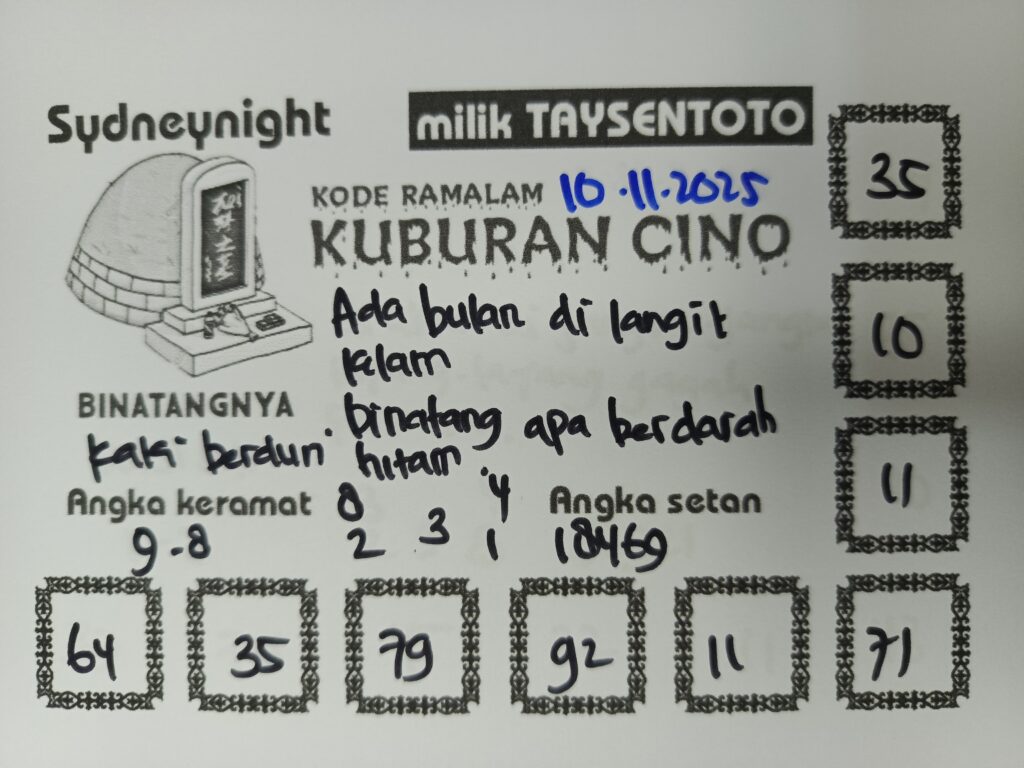 Sydneynight
milik TAYSENTOTO
KODE RAMALAM 10.11.2025
KUBURAN CINO
Ada bulan di langit
kelam
binatang apa berdarah
hitam
BINATANGNYA
kaki berduri
Angka keramat
9-8
8 4
3
2 1
Angka setan
18469
35
10
11
64 35 79 92 11 71